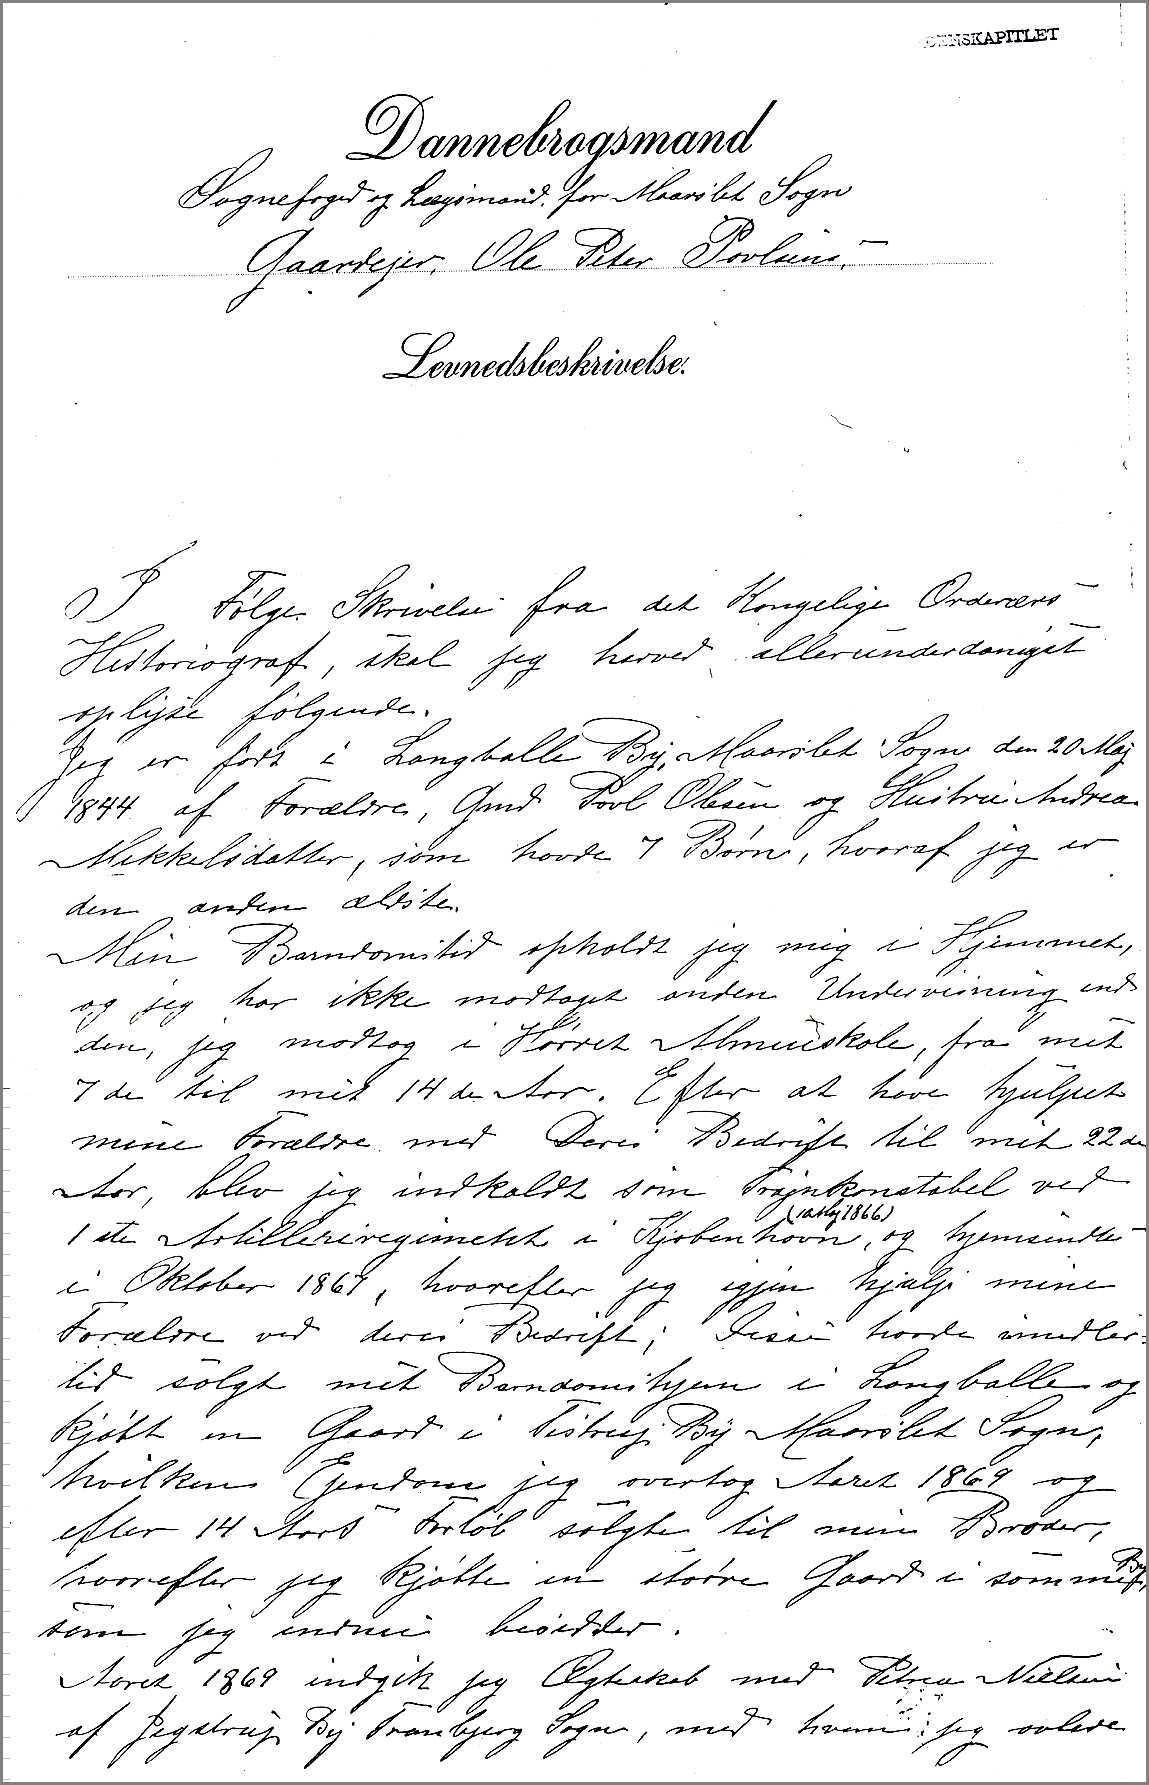 DENSKAPITLET
Dannebrogsmand
Sognefoged og Lægsmand for Maarslet Sogn
Gaardejer. Ole Peter Povlsens.
Levnedsbeskrivelse.
I Følge Skrivelse fra det Kongelige Ordeners
Historiograf, skal jeg herved allerunderdanigst
oplyse følgende.
Jeg er født i Langballe By, Maarslet Sogn den 20 Maj
1844 af Forældre, Gmd Povl Olesen og Hustru Andrea
Mikkelsdatter, som havde 7 Børn, hvoraf jeg er
den anden ældste.
Min Barndomstid opholdt jeg mig i Hjemmet,
og jeg har ikke modtaget anden Undervisning end
den, jeg modtog i Hørret Almueskole, fra mit
7 de til mit 14 de Aar. Efter at have hjulpet
mine Forældre med Deres Bedrift til mit 22 de
Aar, blev jeg indkaldt som Trainkonstabel ved
(1 Maj 1866)
1 ste Artilleriregiment i Kjøbenhavn, og hjemsendte
i Oktober 1867, hvorefter jeg igjen hjalp mine
Forældre ved deres Bedrift; Disse havde imidler-
tid solgt mit Barndomshjem i Langballe og
kjøbt en Gaard i Testrup By Maarslet Sogn,
hvilken Ejendom jeg overtog Aaret 1869 og
efter 14 Aars Forløb solgte til min Broder,
hvorefter jeg kjøbte en større Gaard i samme By,
som jeg endnu besidder.
Aaret 1869 indgik jeg Ægteskab med Petrea Nielsen
af Jegstrup By Tranbjerg Sogn, med hvem jeg avlede